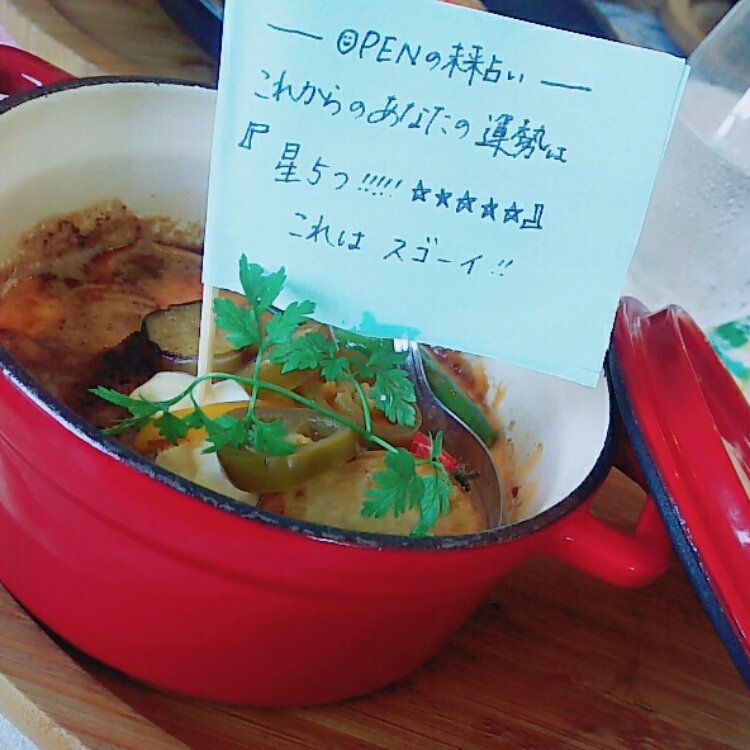 — OPENの未来占い —
これからのあなたの運勢は
『星5つ!!!!! ☆☆☆☆☆』
これは スゴーイ!!